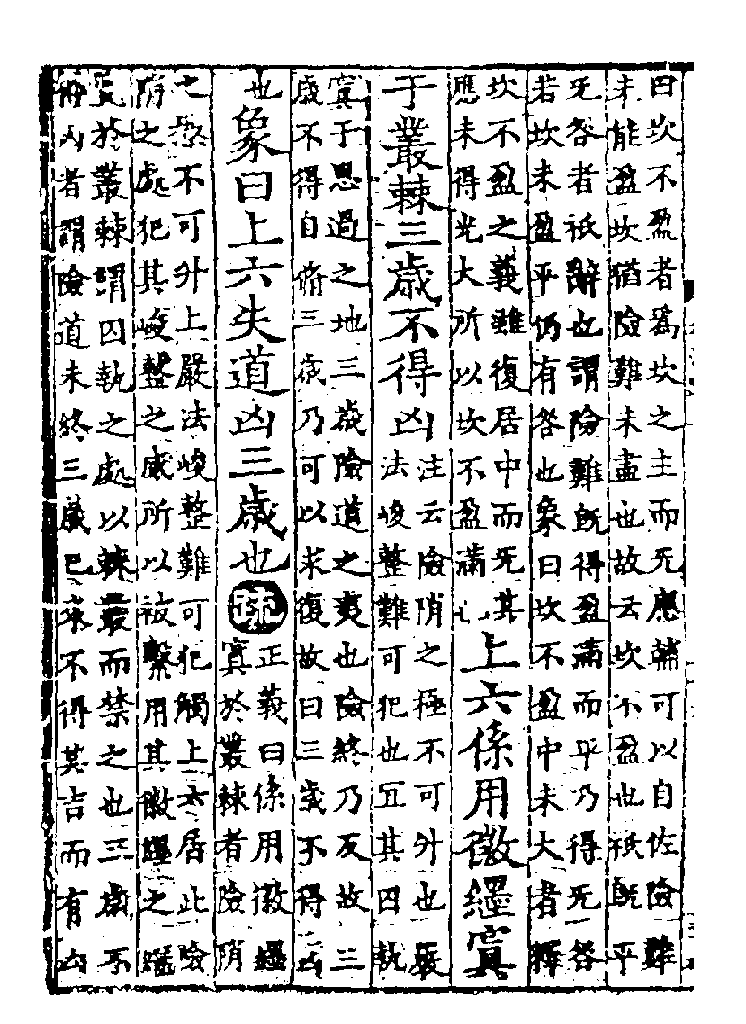 曰坎不盈者爲坎之主而无應輔可以自佐險難
未能盈坎猶險難未盡也故云坎不盈也祗旣平
无咎者祗辭也謂險難旣得盈滿而平乃得无咎
若坎未盈平仍有咎也象曰坎不盈中未大者釋
坎不盈之義雖復居中而无其
應未得光大所以坎不盈滿
上六係用徽纆寘
于叢棘三歲不得凶
注云險陗之極不可升也嚴
法峻整難可犯也宜其囚執
寘于思過之地三歲險道之夷也險終乃反故三
歲不得自脩三歲乃可以求復故曰三歲不得凶
也
象曰上六失道凶三歲也
疏
正義曰係用徽纆
寘於叢棘者險陗
之極不可升上嚴法峻整難可犯觸上六居此險
陗之處犯其峻整之威所以被繫用其徽纆之繩
置於叢棘謂囚執之處以棘叢而禁之也三歲不
得凶者謂險道未終三歲已來不得其吉而有凶